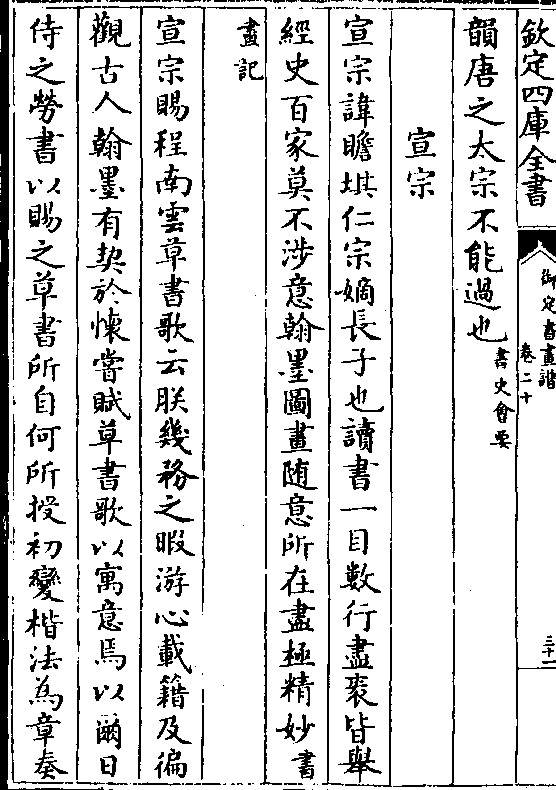 欽定四庫全書
御定書畫譜
卷二十
三十一
韻唐之太宗不能過也書史會要
宣宗
宣宗諱瞻堪仁宗嫡長子也讀書一目數行盡衮皆舉
經史百家莫不涉意翰墨圖畫随意所在盡極精妙書
畫記
宣宗賜程南雲草書歌云朕幾務之暇游心載籍及徧
觀古人翰墨有契於懷嘗賦草書歌以寓意焉以爾日
侍之勞書以賜之草書所自何所授初變楷法為章奏